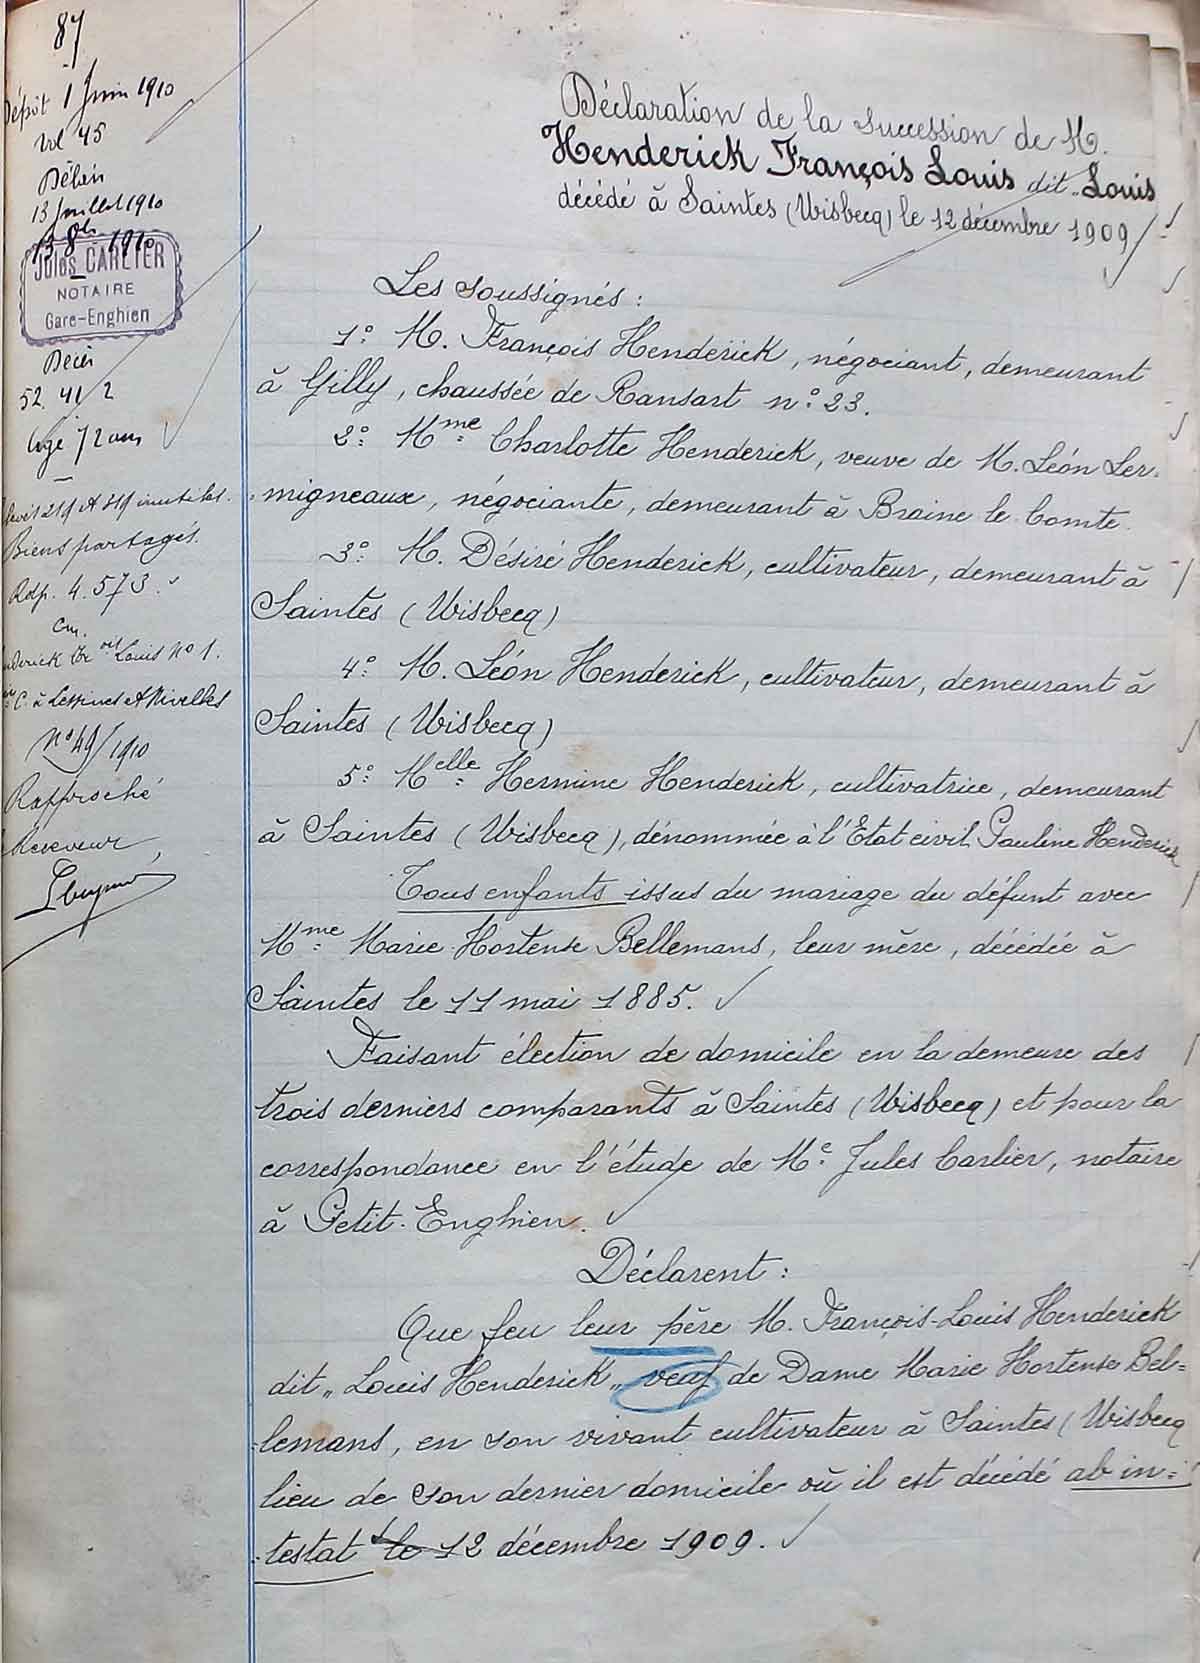 87
Dépôt 1 Juin 1910
Vol 45
Délai
13 Juillet 1910
13 8bre 1910
Jules CARLIER
NOTAIRE
Gare-Enghien
Décès
52. 41 2
âgé 72 ans
219 et 319 inutiles.
Biens partagés.
Rdp. 4.573.
cm.
Louis No 1.
C. à Lessines et Nivelles
No 49/1910
Rapproché
Receveur
Déclaration de la succession de M.
Henderick François Louis dit „Louis
décédé à Saintes (Wisbecq) le 12 décembre 1909/
Les soussignés :
1o: M. François Henderick, négociant, demeurant
à Gilly, chaussée de Ransart no: 23.
2o: Mme: Charlotte Henderick, veuve de M. Léon Ler-
-migneaux, négociante, demeurant à Braine le Comte.
3o: M. Désiré Henderick, cultivateur, demeurant à
Saintes (Wisbecq)
4o: M. Léon Henderick, cultivateur, demeurant à
Saintes (Wisbecq)
5o: Melle: Hermine Henderick, cultivatrice, demeurant
à Saintes (Wisbecq), dénommée à l'Etat civil Pauline Henderick
Tous enfants issus du mariage du défunt avec
Mme: Marie-Hortense Bellemans, leur mère, décédée à
Saintes le 11 mai 1885.
Faisant élection de domicile en la demeure des
trois derniers comparants à Saintes (Wisbecq) et pour la
correspondance en l'étude de Me: Jules Carlier, notaire
à Petit-Enghien.
Déclarent :
Que feu leur père M. François-Louis Henderick
dit „Louis Henderick„ veuf de Dame Marie Hortense Bel=
-lemans, en son vivant cultivateur à Saintes (Wisbecq
lieu de son dernier domicile où il est décédé ab in=
-testat le 12 décembre 1909.